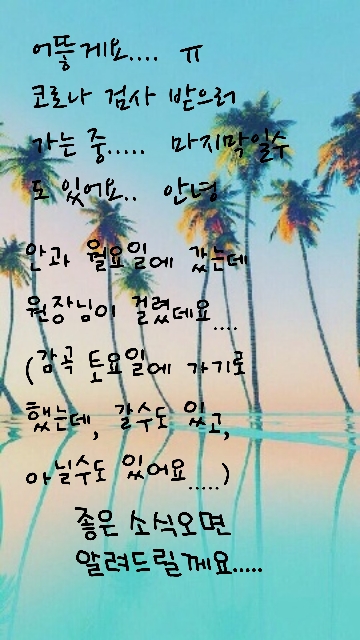 어떻게요.... ㅠ
코로나 검사 받으러
가는 중..... 마지막일수
도 있어요.. 안녕
안과 월요일에 갔는데
원장님이 걸렸데요....
(감곡 토요일에 가기로
했는데, 갈수도 있고,
아닐수도 있어요.....)
좋은 소식오면
알려드릴께요.....